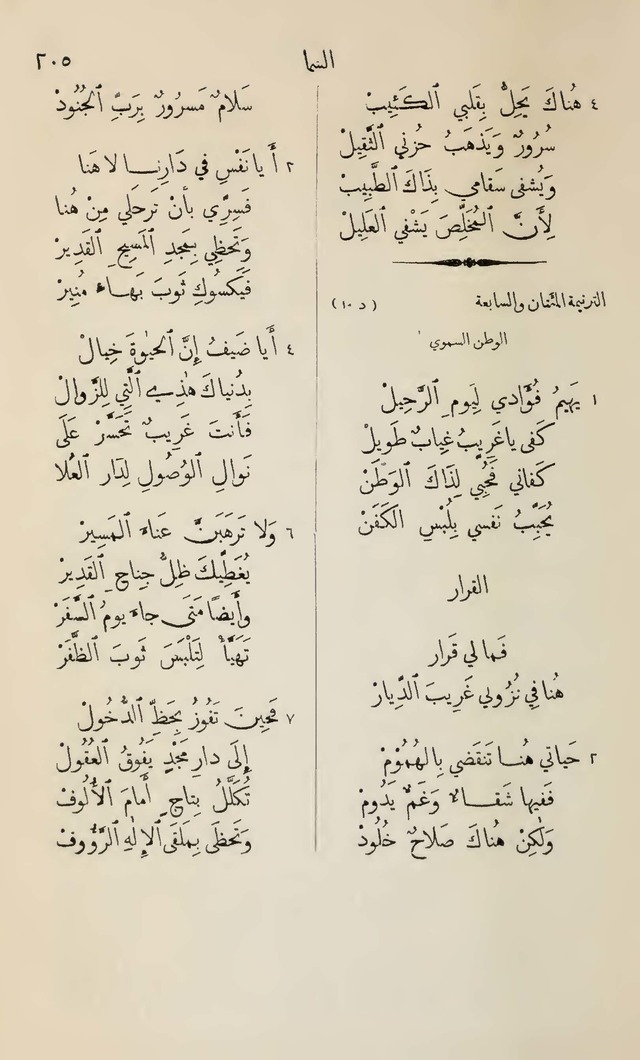 السما
٢٠٥
٤ هُنَاكَ يَحِلُّ بِقَلبِي ٱلكَئِيبْ
سُرُورٌ وَيَذهَبُ حُزني ٱلثَّقِيلْ
وَيُشفى سَقامي بِذَاكَ ٱلطَّبِيبْ
لِأَنَّ ٱلمُخَلِّصَ يَشْفي ٱلعَلِيلْ
الترنيمة المئتان والسابعة (د ١٠)
الوطن السموي
١ يَهِيمُ فُؤَادي لِيَومِ ٱلرَّحِيلْ
كَفى ياغَرِيبُ غِيابٌ طَوِيلْ
كَفاني فَحُبِّي لِذَاكَ ٱلوَطَنْ
يُحَبِّبُ نَفسي بِلُبْسِ ٱلكَفَنْ
القرار
فَمالي قَرار
هُنافي نُزُولي غَرِيبَ ٱلدِّيارْ
٢ حَياتي هُنا تَنقَضي بِالهُمُومْ
فَفيها شَقاءٌ وَغَمٌّ يَدُومْ
وَلٰكِنْ هُناكَ صَلاحٌ خُلُودْ
سَلامٌ مَسرُورٌ بِرَبِّ ٱلجُنُودْ
٢ أَيا نَفْسِ في دَارِنا لا هَنا
فَسِرِّي بِأَنْ تَرحَلي مِنْ هُنا
وَتَحظِي بِمَجدِ ٱلمَسِيحِ ٱلقَدِيرْ
فَيَكسُوكِ ثَوبَ بَهاءٍ مُنِيرْ
٤ أَيا ضَيفُ إِنَّ ٱلحَيٰوةَ خَيالْ
بِدُنياكَ هٰذِي ٱلَّتِي لِلزَّوالْ
فَأَنتَ غَرِيبٌ تَحَسَّرْ عَلَى
نَوالِ ٱلوُصُولِ لِدَارِ ٱلعُلا
٦ وَلا تَرهَبَنَّ عَناءَ ٱلمَسِيرْ
يُغَطِّيكَ ظِلُّ جِناحِ ٱلقَدِيرْ
وأَيضًا مَتَى جاءَ يومُ ٱلسَّفَرْ
تَهَيَّأْ لِتَلْبَسَ ثَوبَ ٱلظَّفَرْ
٧ فَحِينَ تَفُوزُ بِحَظِّ ٱلدُّخُولْ
إِلَى دارِ مَجْدٍ يَفُوقُ ٱلعُقُولْ
تُكَلَّلُ بِتاجٍ أَمامَ ٱلأُلُوفْ
وَتَحظَى بِمَلقَى ٱلإِلهِ ٱلرَّؤُوفْ